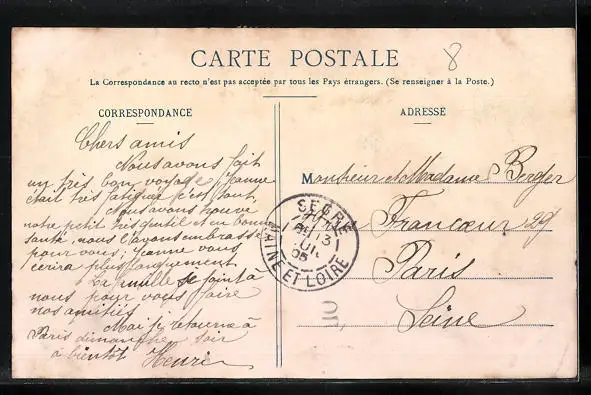 CARTE POSTALE
8
La Correspondance au recto n'est pas acceptée par tous les Pays étrangers. (Se renseigner à la Poste.)
CORRESPONDANCE
Chers amis
Nous avons fait
un très bon voyage Jeanne
était très fatiguée c'est tout,
Nous avons trouvé
notre petit très gentil et en bonne
santé, nous l'avons embrassé
pour vous; Jeanne vous
ecrira plus longuement
La famille se joint à
nous pour vous faire
nos amitiés
Moi je retourne à
Paris dimanche soir
à bientôt Henri
ADRESSE
Monsieur et Madame Berger
Francœur 29
Paris
Seine
SEGRÉ
13
JUIL
05
MAINE ET LOIRE
10